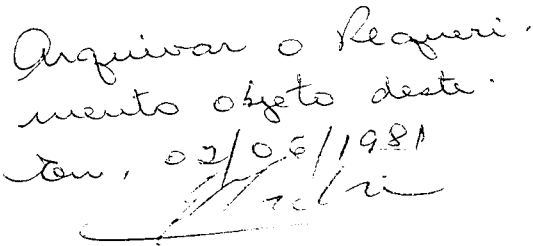 Arquivar o Requeri.
mento objeto deste.
Em, 02/06/1981